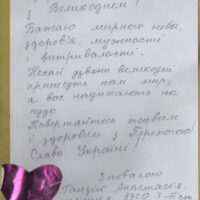 з Великоднем!
Бажаю мирного неба,
здоров'я, мужності
і витривалості.
Нехай дзвони великодні
принесуть нам мир,
а вас надихають на
чудо.
Повертайтесь живим
і здоровим з Перемогою!
Слава Україні!
З повагою
Анастасія,